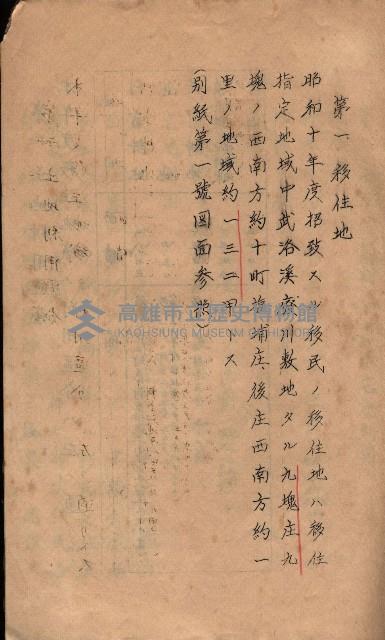 第一移住地
昭和十年度招致スル移民ノ移住地ハ移住
指定地域中武洛溪廢川敷地タル九塊庄九
塊ノ西南方約十町塩埔庄後庄西南方約一
里ノ地域約一三二甲トス
(別紙第一號図面参照)
高雄市立歷史博物館
KAOHSIUNG MUSEUM OF HISTORY